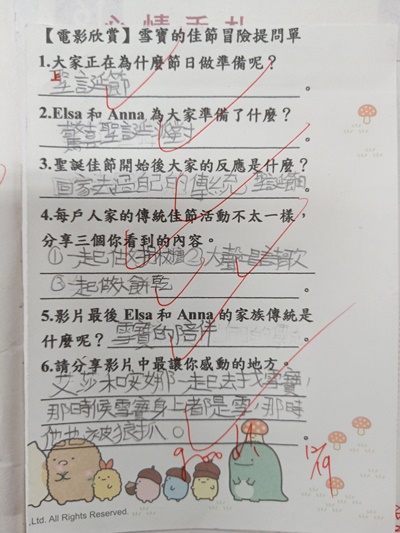 心情手札
【電影欣賞】雪寶的佳節冒險提問單
1.大家正在為什麼節日做準備呢？
聖誕節。
2.Elsa 和 Anna 為大家準備了什麼？
驚喜聖誕派對。
3.聖誕佳節開始後大家的反應是什麼？
回家去過自己的傳統聖誕節。
4.每戶人家的傳統佳節活動不太一樣，
分享三個你看到的內容。
①一起 ②大聲唱詩歌
③一起做餅乾。
5.影片最後 Elsa 和 Anna 的家族傳統是
什麼呢？雪寶的陪伴
6.請分享影片中最讓你感動的地方。
艾莎和安娜一起去找雪寶，
那時候雪寶身上都是雪，那時
他也被狼抓。
12/19
,Ltd. All Rights Reserved.